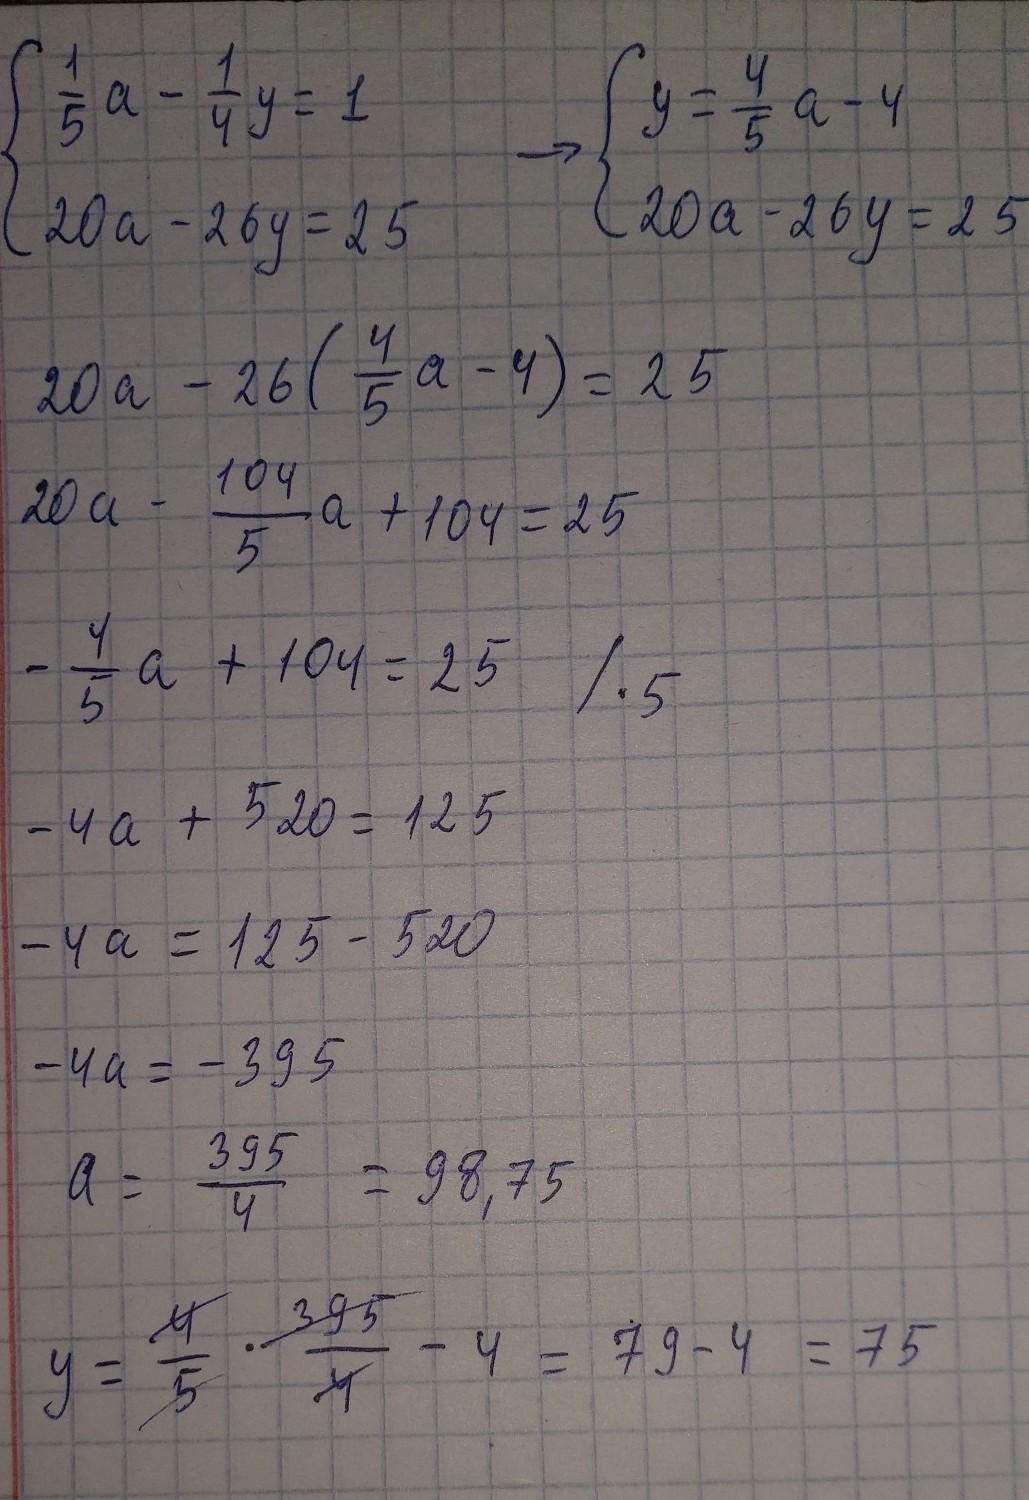 { 1/5 a - 1/4 y = 1 → { y = 4/5 a - 4
20a - 26y = 25 20a - 26y = 25
20a - 26 ( 4/5 a - 4 ) = 25
20a - 104/5 a + 104 = 25
- 4/5 a + 104 = 25 / · 5
-4a + 520 = 125
-4a = 125 - 520
-4a = -395
a = 395/4 = 98,75
y = 4/5 · 395/4 - 4 = 79 - 4 = 75